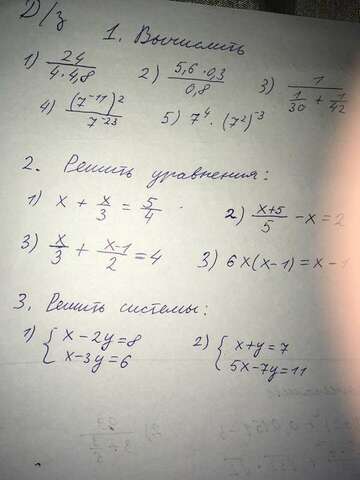 Д/з
1. Вычислить
1) 24/(4·4,8) 2) (5,6·0,3)/0,8 3) 1/(1/30 + 1/42)
4) (7^-11)^2/7^-23 5) 7^4 · (7^2)^-3
2. Решить уравнения:
1) x + x/3 = 5/4 2) (x+5)/5 - x = 2
3) x/3 + (x-1)/2 = 4 3) 6x(x-1) = x - 1
3. Решить системы:
1) { x - 2y = 8 2) { x + y = 7
x - 3y = 6 5x - 7y = 11